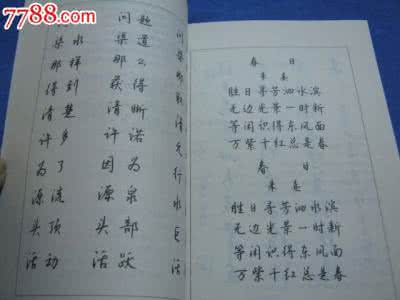 7788.com
问题
渠水 渠道
那样 那么
得到 获得
清楚 清晰
许多 许诺
为了 因为
源流 源泉
头顶 头部
活动 活跃
春日
朱熹
胜日寻芳泗水滨
无边光景一时新
等闲识得东风面
万紫千红总是春
春日
朱熹
胜日寻芳泗水滨
无边光景一时新
等闲识得东风面
万紫千红总是春